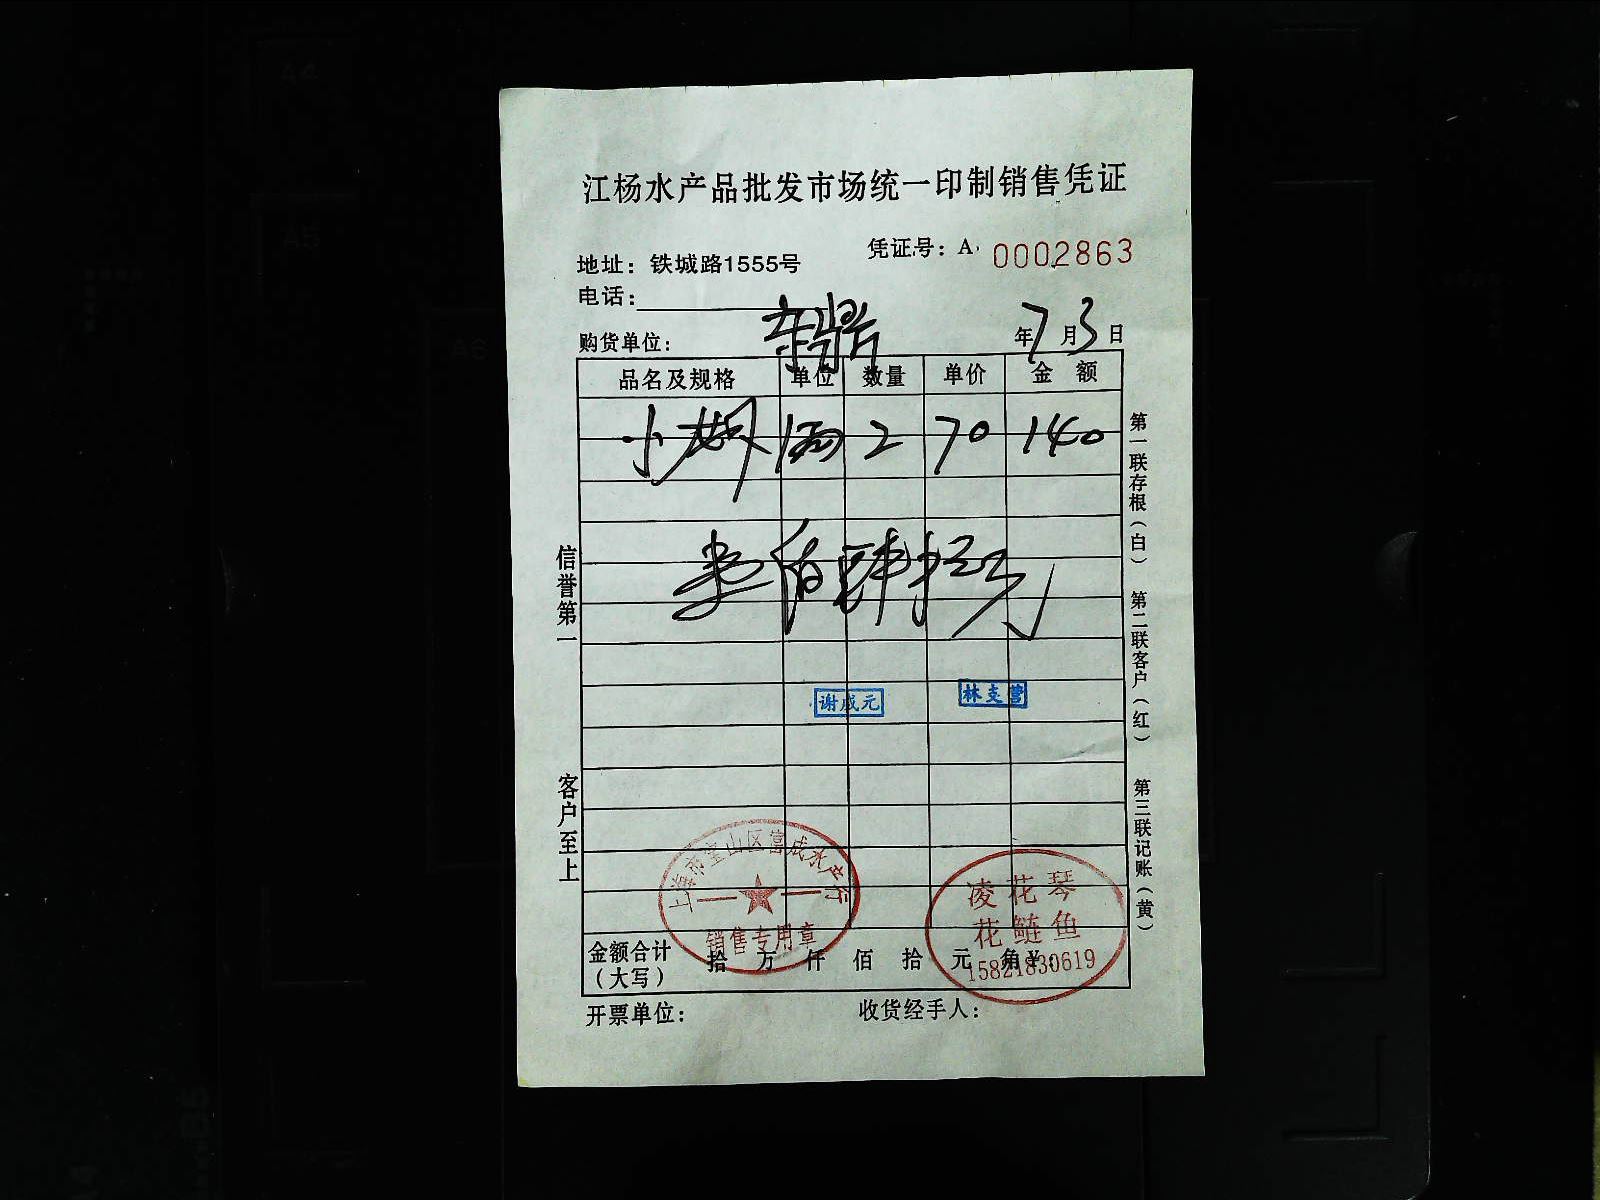 江杨水产品批发市场统一印制销售凭证
凭证号：A 0002863
地址：铁城路1555号
电话：
购货单位：
年7月3日
品名及规格 单位 数量 单价 金额
小 2 70 140
壹佰肆拾元
谢成元
林支营
信誉第一
客户至上
第一联存根（白）
第二联客户（红）
第三联记账（黄）
上海市宝山区营成水产行
销售专用章
凌花琴
花鲢鱼
15821830619
金额合计（大写） 拾 万 仟 佰 拾 元 角 ¥：
开票单位：
收货经手人：